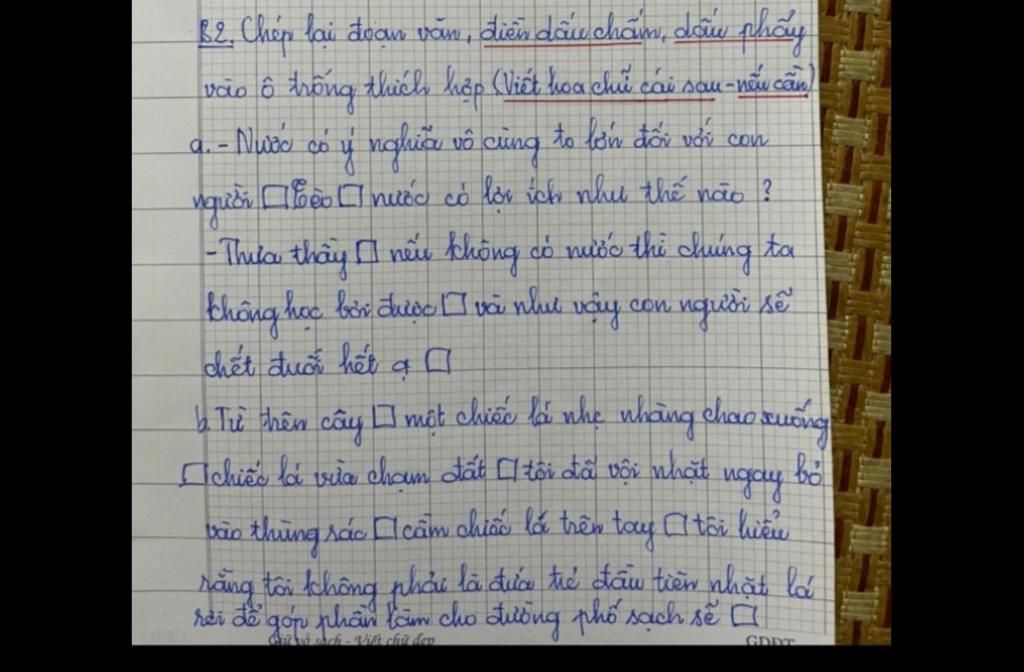 B2. Chép lại đoạn văn, điền dấu chấm, dấu phẩy
vào ô trống thích hợp (Viết hoa chữ cái sau - nếu cần)
a. - Nước có ý nghĩa vô cùng to lớn đối với con
người □ Tèo □ nước có lợi ích như thế nào ?
- Thưa thầy □ nếu không có nước thì chúng ta
không học bơi được □ và như vậy con người sẽ
chết đuối hết ạ □
b. Từ trên cây □ một chiếc lá nhẹ nhàng chao xuống
□ chiếc lá vừa chạm đất □ tôi đã vội nhặt ngay bỏ
vào thùng rác □ cầm chiếc lá trên tay □ tôi hiểu
rằng tôi không phải là đứa trẻ đầu tiên nhặt lá
rơi để góp phần làm cho đường phố sạch sẽ □
Giữ vở sạch - Viết chữ đẹp GDĐT